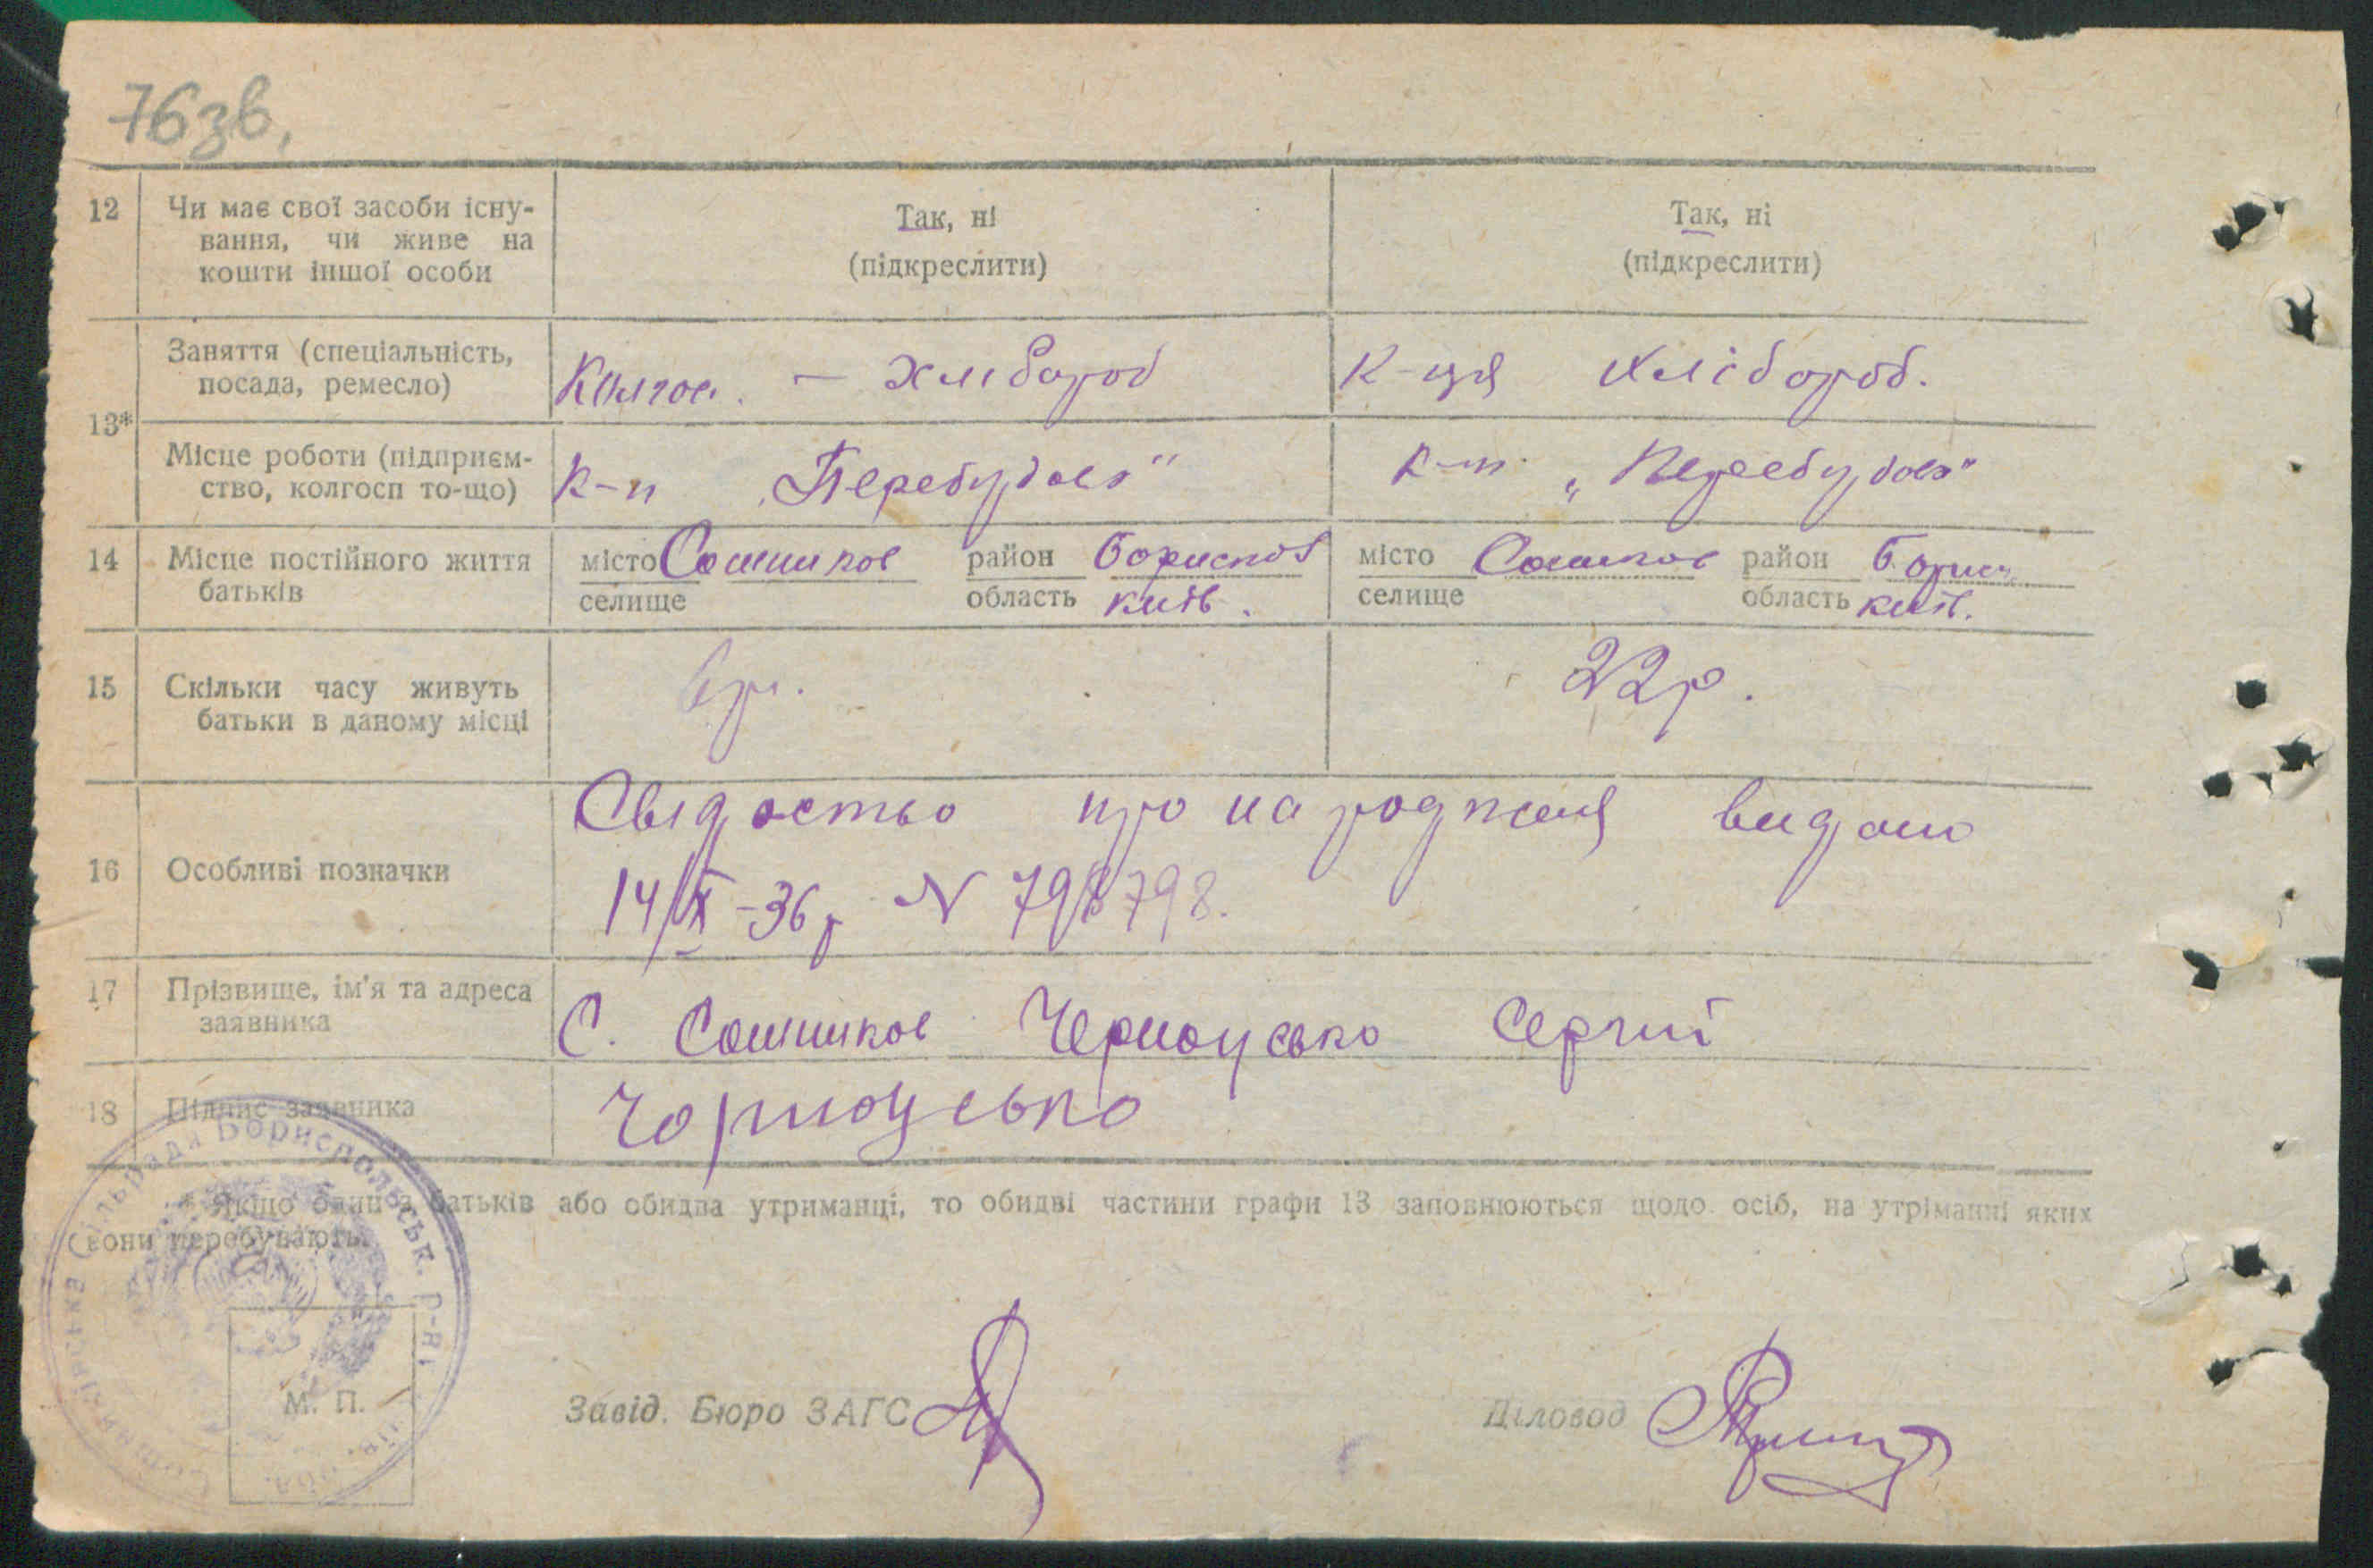 76зв.
12 Чи має свої засоби існу-
вання, чи живе на
кошти іншої особи
Так, ні
(підкреслити)
Так, ні
(підкреслити)
13*
Заняття (спеціальність,
посада, ремесло)
Колгос. – хлібороб
К-ця хлібороб.
Місце роботи (підприєм-
ство, колгосп то-що)
К-п „Перебудова"
К-п „Перебудова"
14 Місце постійного життя
батьків
місто Сошников район Бориспол
селище область київ.
місто Сошников район Борис.
селище область київ.
15 Скільки часу живуть
батьки в даному місці
22р.
16 Особливі позначки
Свідоство про народженя видано
14/ІХ-36р N 798798.
17 Прізвище, ім'я та адреса
заявника
С. Сошников Черноусько Сергиї
18 Підпис заявника
Чорноусько
* Якщо один з батьків або обидва утриманці, то обидві частини графи 13 заповнюються щодо осіб, на утріманні яких
вони перебувають.
Сільрада Бориспольськ. р-ну
М. П.
Завід. Бюро ЗАГС
Діловод